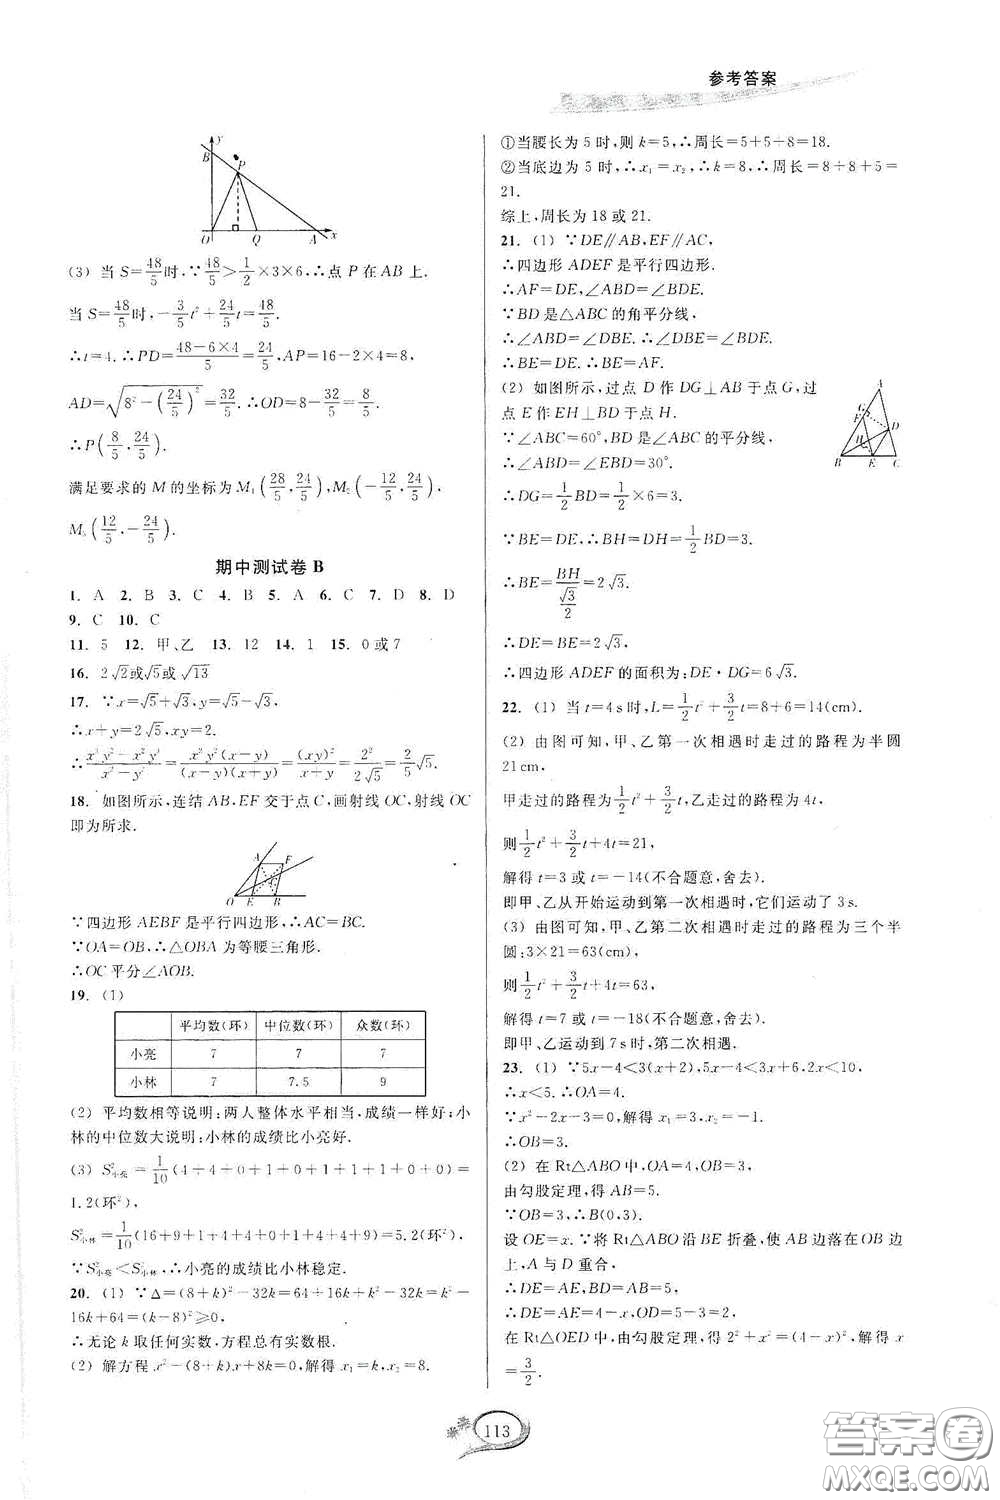 参考答案
y
B
P
O
Q
A
x
(3) 当 S=48/5时,∵48/5>1/2×3×6,∴点 P 在 AB 上.
当 S=48/5时,-3/5t²+24/5t=48/5.
∴t=4.∴PD=(48-6×4)/5=24/5,AP=16-2×4=8,
AD=√(8²-(24/5)²)=32/5.∴OD=8-32/5=8/5.
∴P(8/5,24/5).
满足要求的 M 的坐标为 M₁(28/5,24/5),M₂(-12/5,24/5),
M₃(12/5,-24/5).
期中测试卷 B
1. A 2. B 3. C 4. B 5. A 6. C 7. D 8. D
9. C 10. C
11. 5 12. 甲、乙 13. 12 14. 1 15. 0或7
16. 2√2或√5或√13
17. ∵x=√5+√3,y=√5-√3,
∴x+y=2√5,xy=2.
∴(x³y²-x²y³)/(x²-y²)=x²y²(x-y)/((x-y)(x+y))=(xy)²/(x+y)=2²/(2√5)=2/5√5.
18. 如图所示,连结 AB,EF 交于点 C,画射线 OC,射线 OC
即为所求.
A
F
O
E
B
∵四边形 AEBF 是平行四边形,∴AC=BC.
∵OA=OB,∴△OBA 为等腰三角形.
∴OC 平分∠AOB.
19. (1)
平均数(环) 中位数(环) 众数(环)
小亮 7 7 7
小林 7 7.5 9
(2) 平均数相等说明:两人整体水平相当,成绩一样好;小
林的中位数大说明:小林的成绩比小亮好.
(3) S²小亮=1/10(4+4+0+1+0+1+1+1+0+0)=
1.2(环²),
S²小林=1/10(16+9+1+4+4+0+1+4+4+9)=5.2(环²)
∵S²小亮<S²小林,∴小亮的成绩比小林稳定.
20. (1) ∵Δ=(8+k)²-32k=64+16k+k²-32k=k²-
16k+64=(k-8)²≥0,
∴无论 k 取任何实数,方程总有实数根.
(2) 解方程 x²-(8+k)x+8k=0,解得 x₁=k,x₂=8.
①当腰长为 5 时,则 k=5,∴周长=5+5+8=18.
②当底边为 5 时,∴x₁=x₂,∴k=8,∴周长=8+8+5=
21.
综上,周长为 18 或 21.
21. (1) ∵DE∥AB,EF∥AC,
∴四边形 ADEF 是平行四边形.
∴AF=DE,∠ABD=∠BDE.
∵BD 是△ABC 的角平分线,
∴∠ABD=∠DBE.∴∠DBE=∠BDE.
∴BE=DE.∴BE=AF.
(2) 如图所示,过点 D 作 DG⊥AB 于点 G,过
点 E 作 EH⊥BD 于点 H.
∵∠ABC=60°,BD 是∠ABC 的平分线,
∴∠ABD=∠EBD=30°.
∴DG=1/2BD=1/2×6=3.
∵BE=DE,∴BH=DH=1/2BD=3.
∴BE=BH/(√3/2)=2√3.
∴DE=BE=2√3.
∴四边形 ADEF 的面积为:DE·DG=6√3.
A
G
F
D
H
B
E
C
22. (1) 当 t=4 s时,L=1/2t²+3/2t=8+6=14(cm).
(2) 由图可知,甲、乙第一次相遇时走过的路程为半圆
21 cm,
甲走过的路程为1/2t²+3/2t,乙走过的路程为 4t,
则1/2t²+3/2t+4t=21,
解得 t=3 或 t=-14(不合题意,舍去).
即甲、乙从开始运动到第一次相遇时,它们运动了 3 s.
(3) 由图可知,甲、乙第二次相遇时走过的路程为三个半
圆:3×21=63(cm),
则1/2t²+3/2t+4t=63,
解得 t=7 或 t=-18(不合题意,舍去).
即甲、乙运动到 7 s时,第二次相遇.
23. (1) ∵5x-4<3(x+2),5x-4<3x+6,2x<10,
∴x<5.∴OA=4.
∵x²-2x-3=0,解得 x₁=3,x₂=-1.
∴OB=3.
(2) 在 Rt△ABO 中,OA=4,OB=3,
由勾股定理,得 AB=5.
∵OB=3,∴B(0,3).
设 OE=x.∵将 Rt△ABO 沿 BE 折叠,使 AB 边落在 OB 边
上,A 与 D 重合,
∴DE=AE,BD=AB=5,
∴DE=AE=4-x,OD=5-3=2.
在 Rt△OED 中,由勾股定理,得 2²+x²=(4-x)²,解得 x
=3/2.
113
答案圈
MXQE.COM